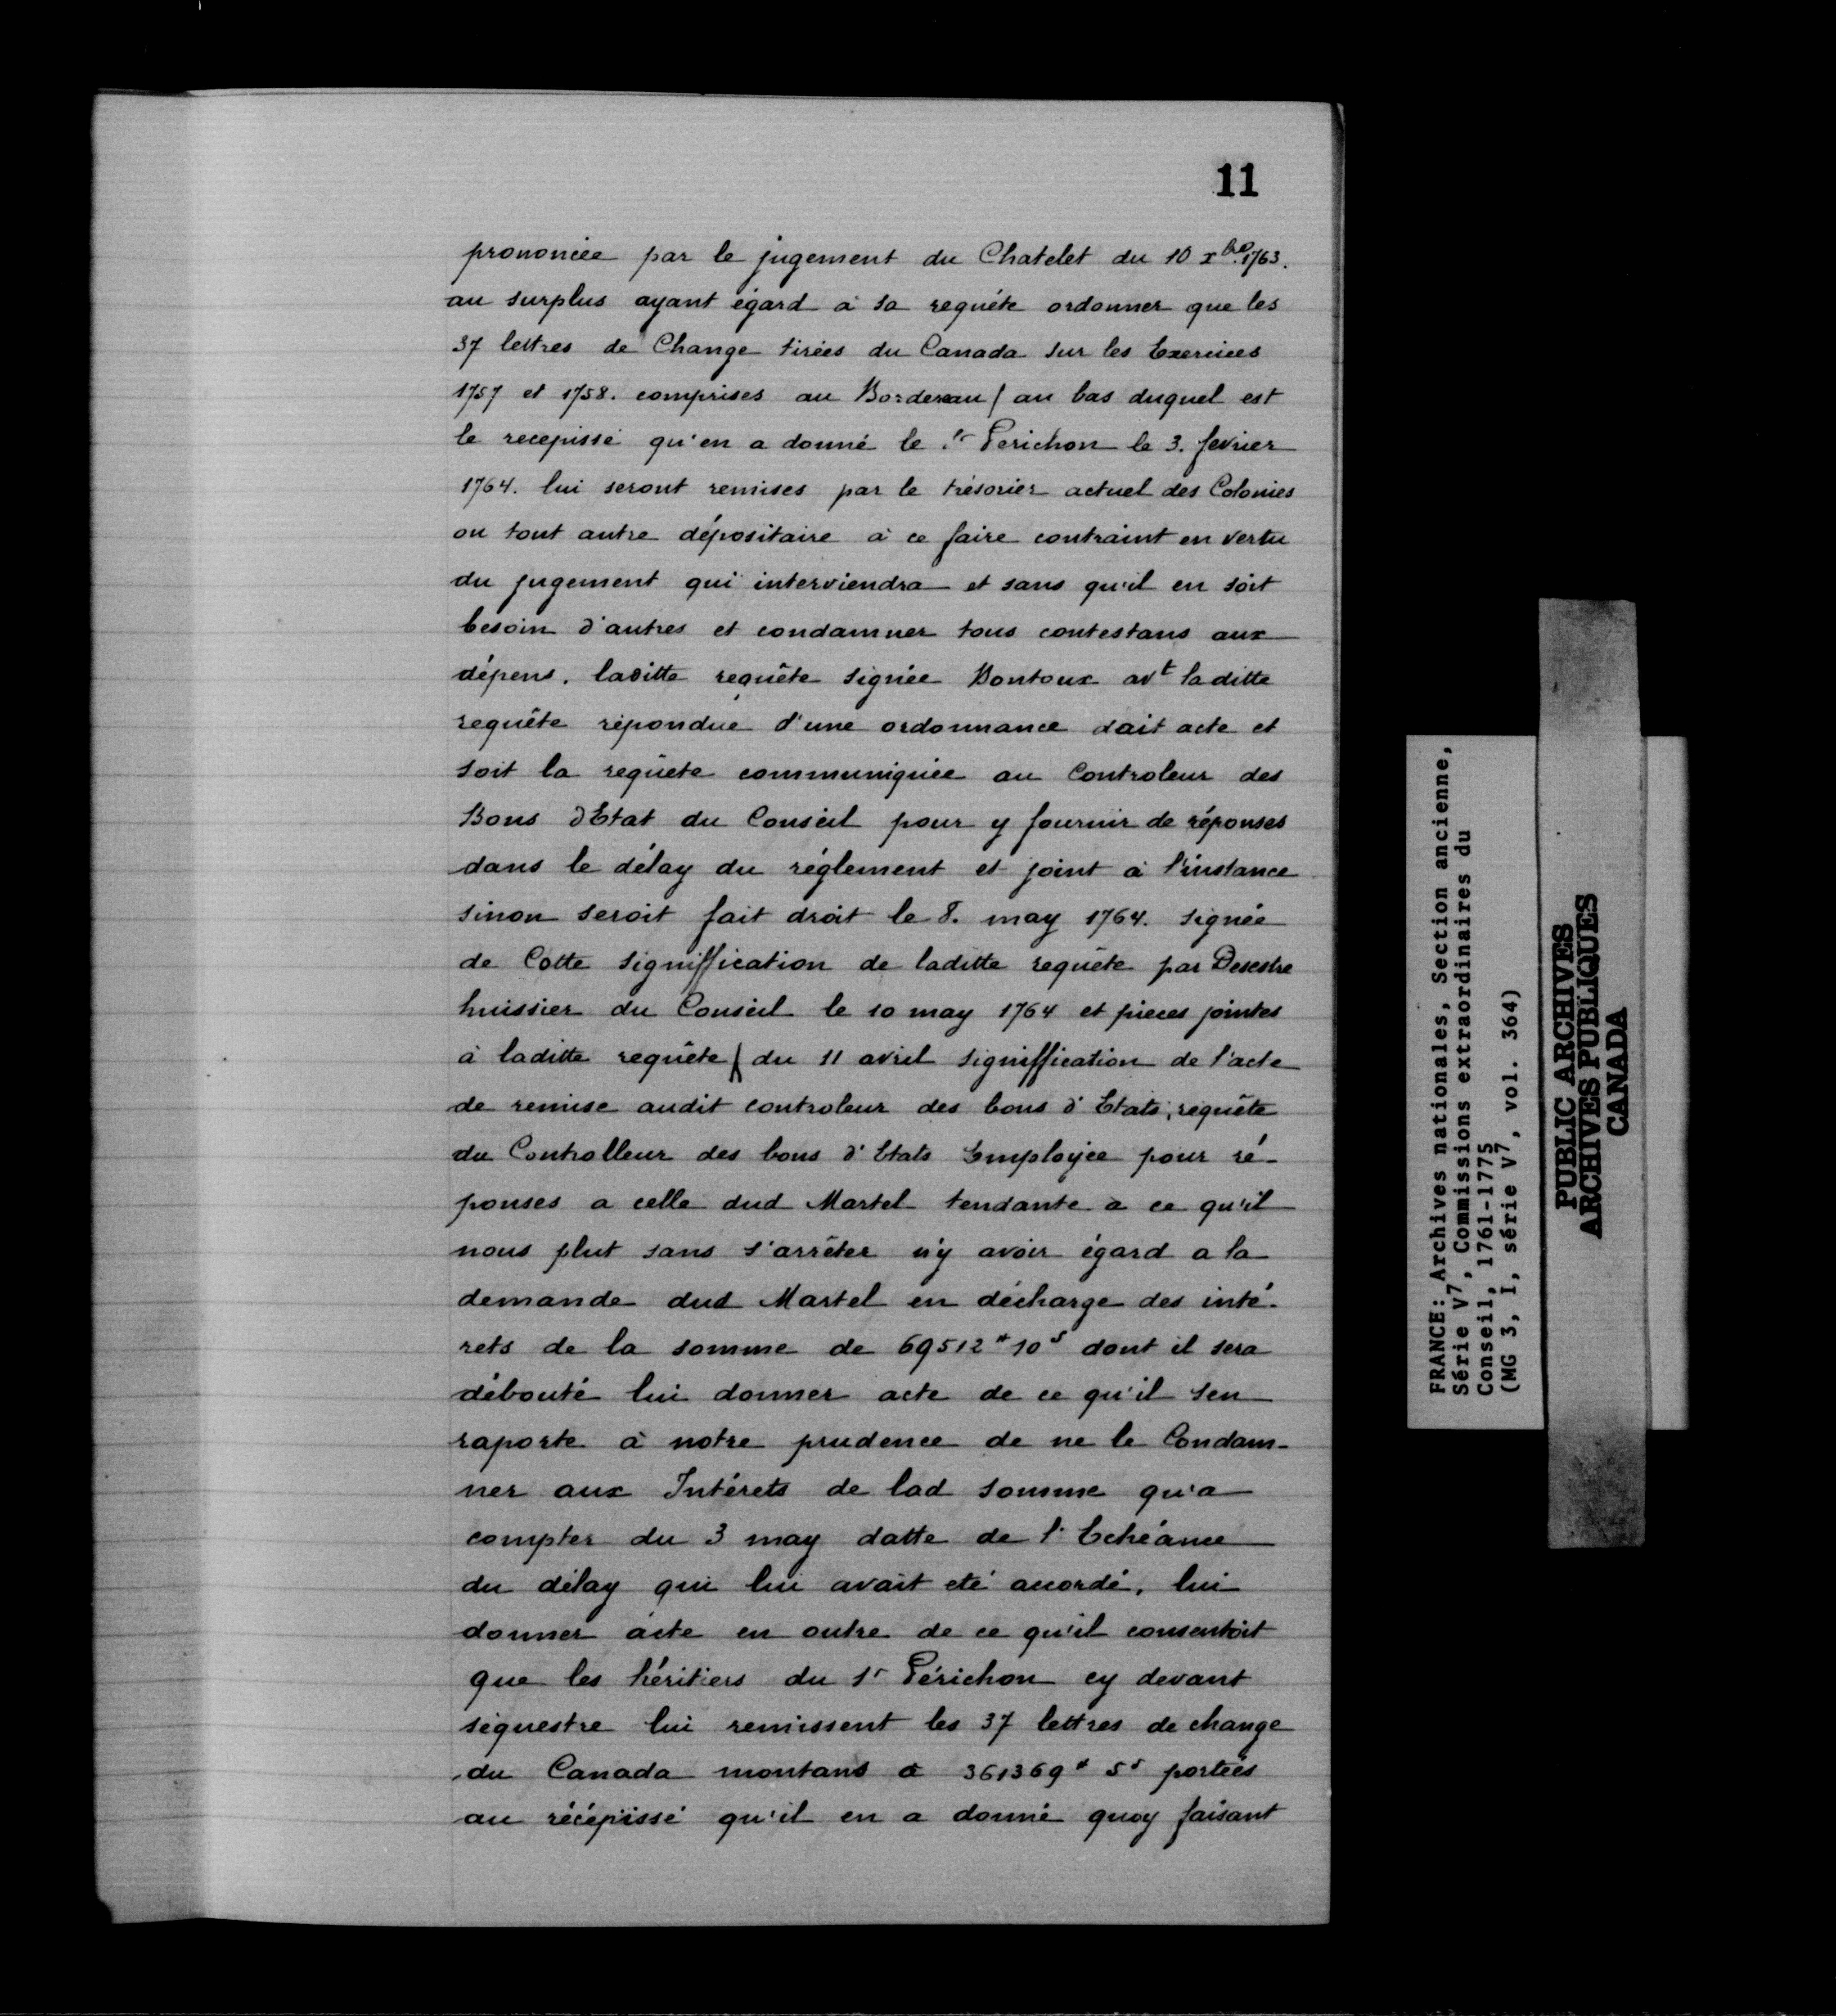 11
prononcée par le jugement du Chatelet du 10 xbre. 1763.
au surplus ayant égard à sa requéte ordonner que les
37 lettres de Change tirées du Canada sur les Exercices
1757 et 1758. comprises au Bordereau / au bas duquel est
le recepissé qu'en a donné le Sr Perichon le 3. fevrier
1764. lui seront remises par le trésorier actuel des Colonies
ou tout autre dépositaire à ce faire contraint en vertu
du jugement qui interviendra et sans qu'il en soit
besoin d'autres et condamner tous contestans aux
dépens. laditte requête signée Bontoux avt laditte
requête répondue d'une ordonnance dait acte et
soit la requête communiquée au Controleur des
Bons d'Etat du Conseil pour y fournir de réponses
dans le délay du réglement et joint à l'instance
sinon seroit fait droit le 8. may 1764. signée
de Cotte signiffication de laditte requête par Desestre
huissier du Conseil le 10 may 1764 et pieces jointes
à laditte requête / du 11 avril signiffication de l'acte
de remise audit controleur des bons d'Etats; requête
du Controlleur des bons d'Etats Employée pour ré-
ponses a celle dud Martel tendante à ce qu'il
nous plut sans s'arrêter n'y avoir égard a la
demande dud Martel en décharge des inté-
rets de la somme de 69512# 10s dont il sera
débouté lui donner acte de ce qu'il sen
raporte à notre prudence de ne le Condam-
ner aux Intérets de lad somme qu'a
compter du 3 may datte de l'Echéance
du délay qui lui avait eté accordé, lui
donner acte en outre de ce qu'il consentoit
que les héritiers du Sr Périchon cy devant
séquestre lui remissent les 37 lettres de change
du Canada montans à 361369# 5s portées
au récépissé qu'il en a donné quoy faisant
FRANCE: Archives nationales, Section ancienne,
Série V7, Commissions extraordinaires du
Conseil, 1761-1775
(MG 3, I, série V7, vol. 364)
PUBLIC ARCHIVES
ARCHIVES PUBLIQUES
CANADA